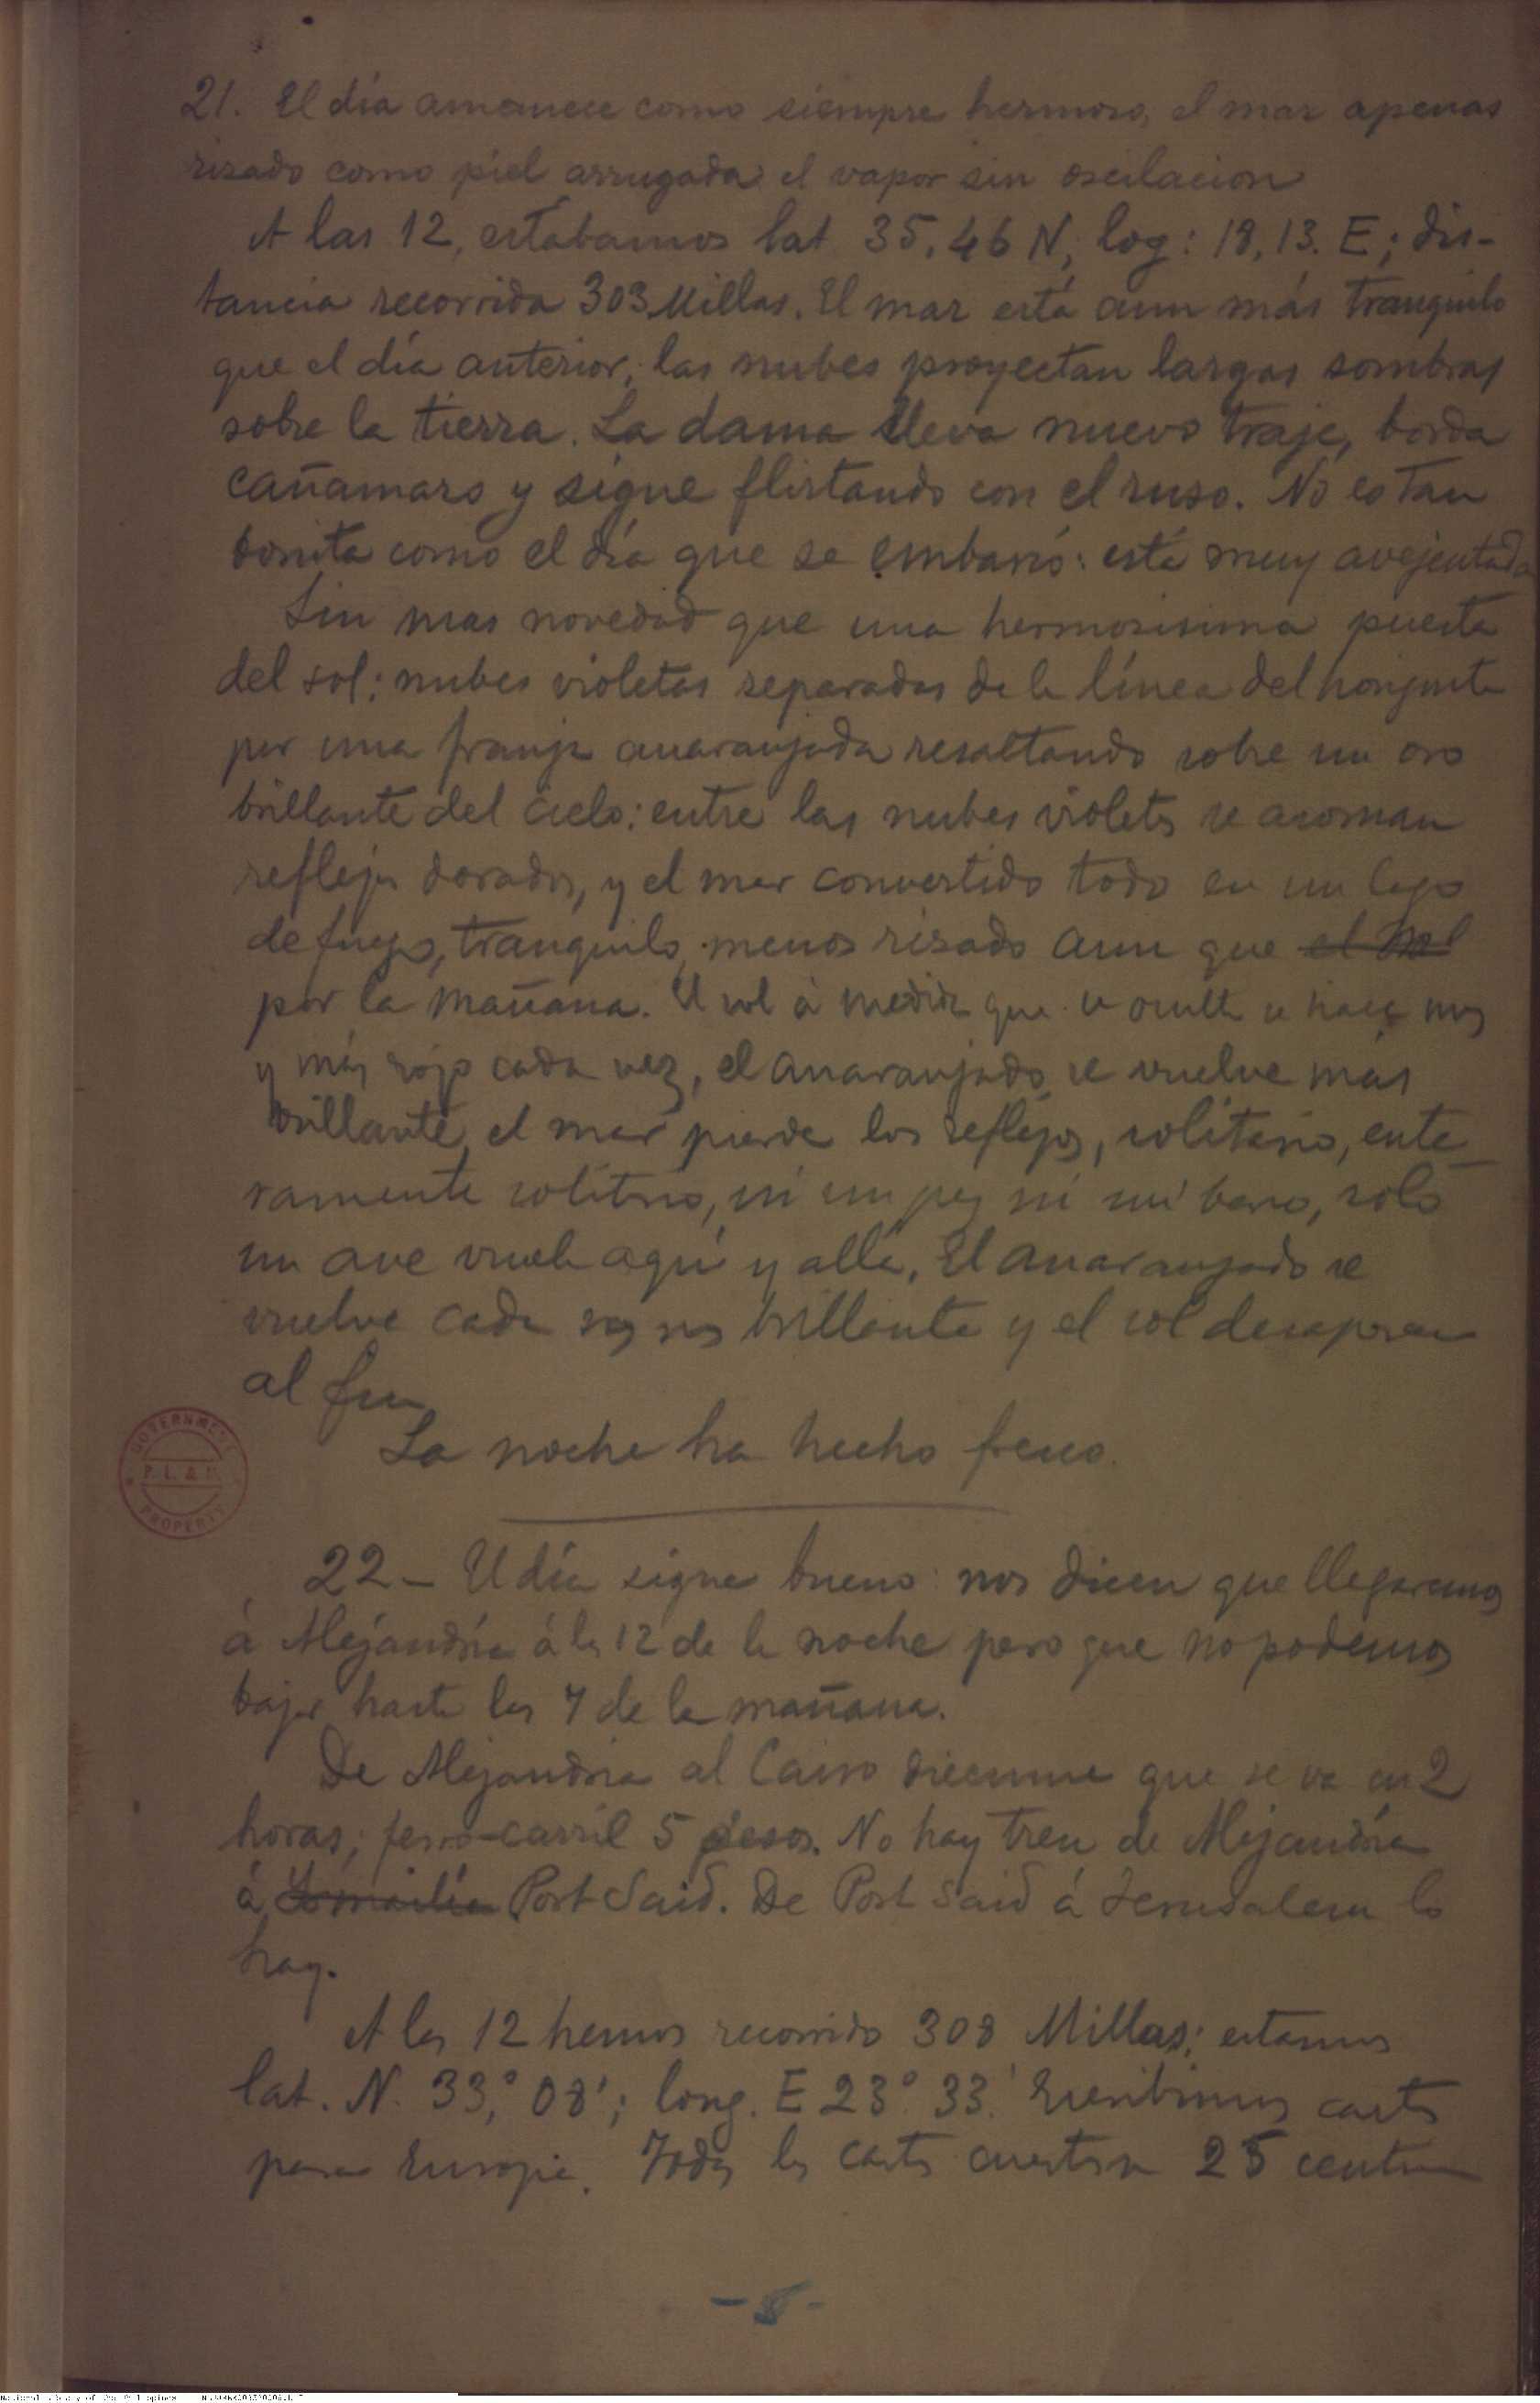 21. El día amanece como siempre hermoso, el mar apenas
rizado como piel arrugada el vapor sin oscilacion
A las 12, estabamos lat 35.46 N, log: 18,13. E; dis-
tancia recorrida 303 Millas. El mar está aun más tranquilo
que el día anterior, las nubes proyectan largas sombras
sobre la tierra. La dama lleva nuevo traje, borda
cañamaso y sigue flirtando con el ruso. No es tan
bonita como el día que se embarcó: está muy avejentada
Sin mas novedad que una hermosisima puesta
del sol: nubes violetas separadas de la línea del horizonte
por una franja anaranjada resaltando sobre un oro
brillante del cielo: entre las nubes violetas se asoman
reflejos dorados, y el mar convertido todo en un lago
de fuego, tranquilo, menos rizado aun que el
por la mañana. El sol á medida que se oculta se hace mas
y más rojo cada vez, el anaranjado se vuelve más
brillante, el mar pierde los reflejos, solitario, ente
ramente solitario, ni un pez ni un barco, solo
un ave vuela aquí y allá. El anaranjado se
vuelve cada vez mas brillante y el sol desaparece
al fin
La noche ha hecho fresco.
GOVERNMENT
P. L. & M.
PROPERTY
22 – El día sigue bueno: nos dicen que llegaremos
á Alejandría á las 12 de la noche pero que no podemos
bajar hasta las 7 de la mañana.
De Alejandria al Cairo dicenme que se va en 2
horas; ferro-carril 5 pesos. No hay tren de Alejandría
á Ismailía Port Said. De Port Said á Jerusalem lo
hay.
A las 12 hemos recorrido 308 Millas; estamos
lat. N. 33,° 08'; long. E 23° 33.' Escribimos cartas
para Europa. Todas las cartas cuestan 25 centimos
- 8 -
National Library of the Philippines